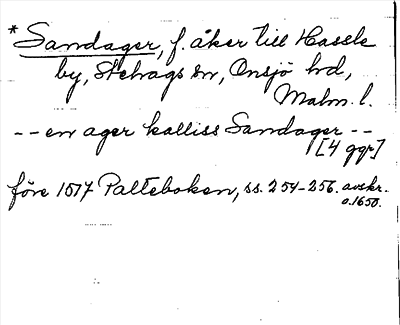 *Sandager, f. åker till Hassle
by, Stehags sn, Onsjö hd,
Malm. l.
-- en ager kalliss Sandager --
[4 ggr]
före 1517 Palteboken, ss. 254-256. avskr.
o. 1650.